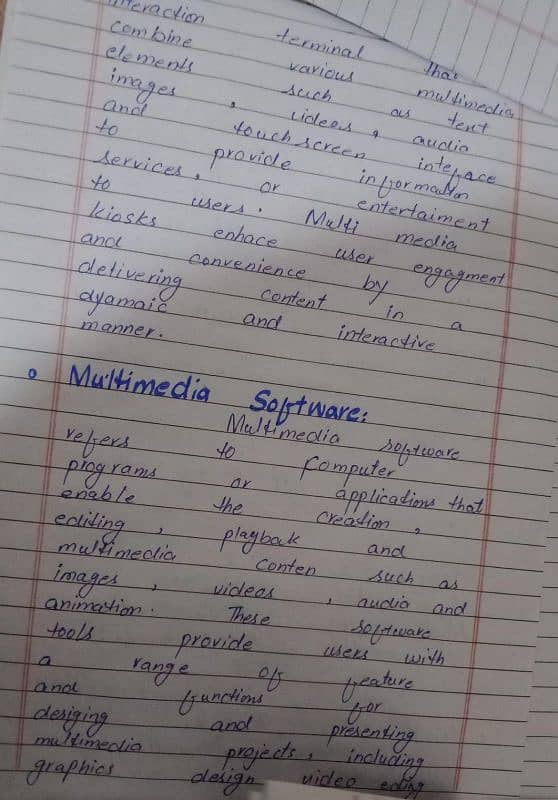 interaction terminal that
combine various multimedia
elements such as text
images , videos , audio
and touch screen inteface
to provide information
services, or entertaiment
to users. Multi media
kiosks enhace user engagment
and convenience by
delivering content in a
dyamaic and interactive
manner.
Multimedia Software:
Multimedia software
refers to Computer
programs or applications that
enable the creation ,
editing , playbak and
multimedia conten such as
images , videos , audio and
animation. These software
tools provide users with
a range of feature
and functions for
desiging and presenting
multimedia projects, including
graphics design video